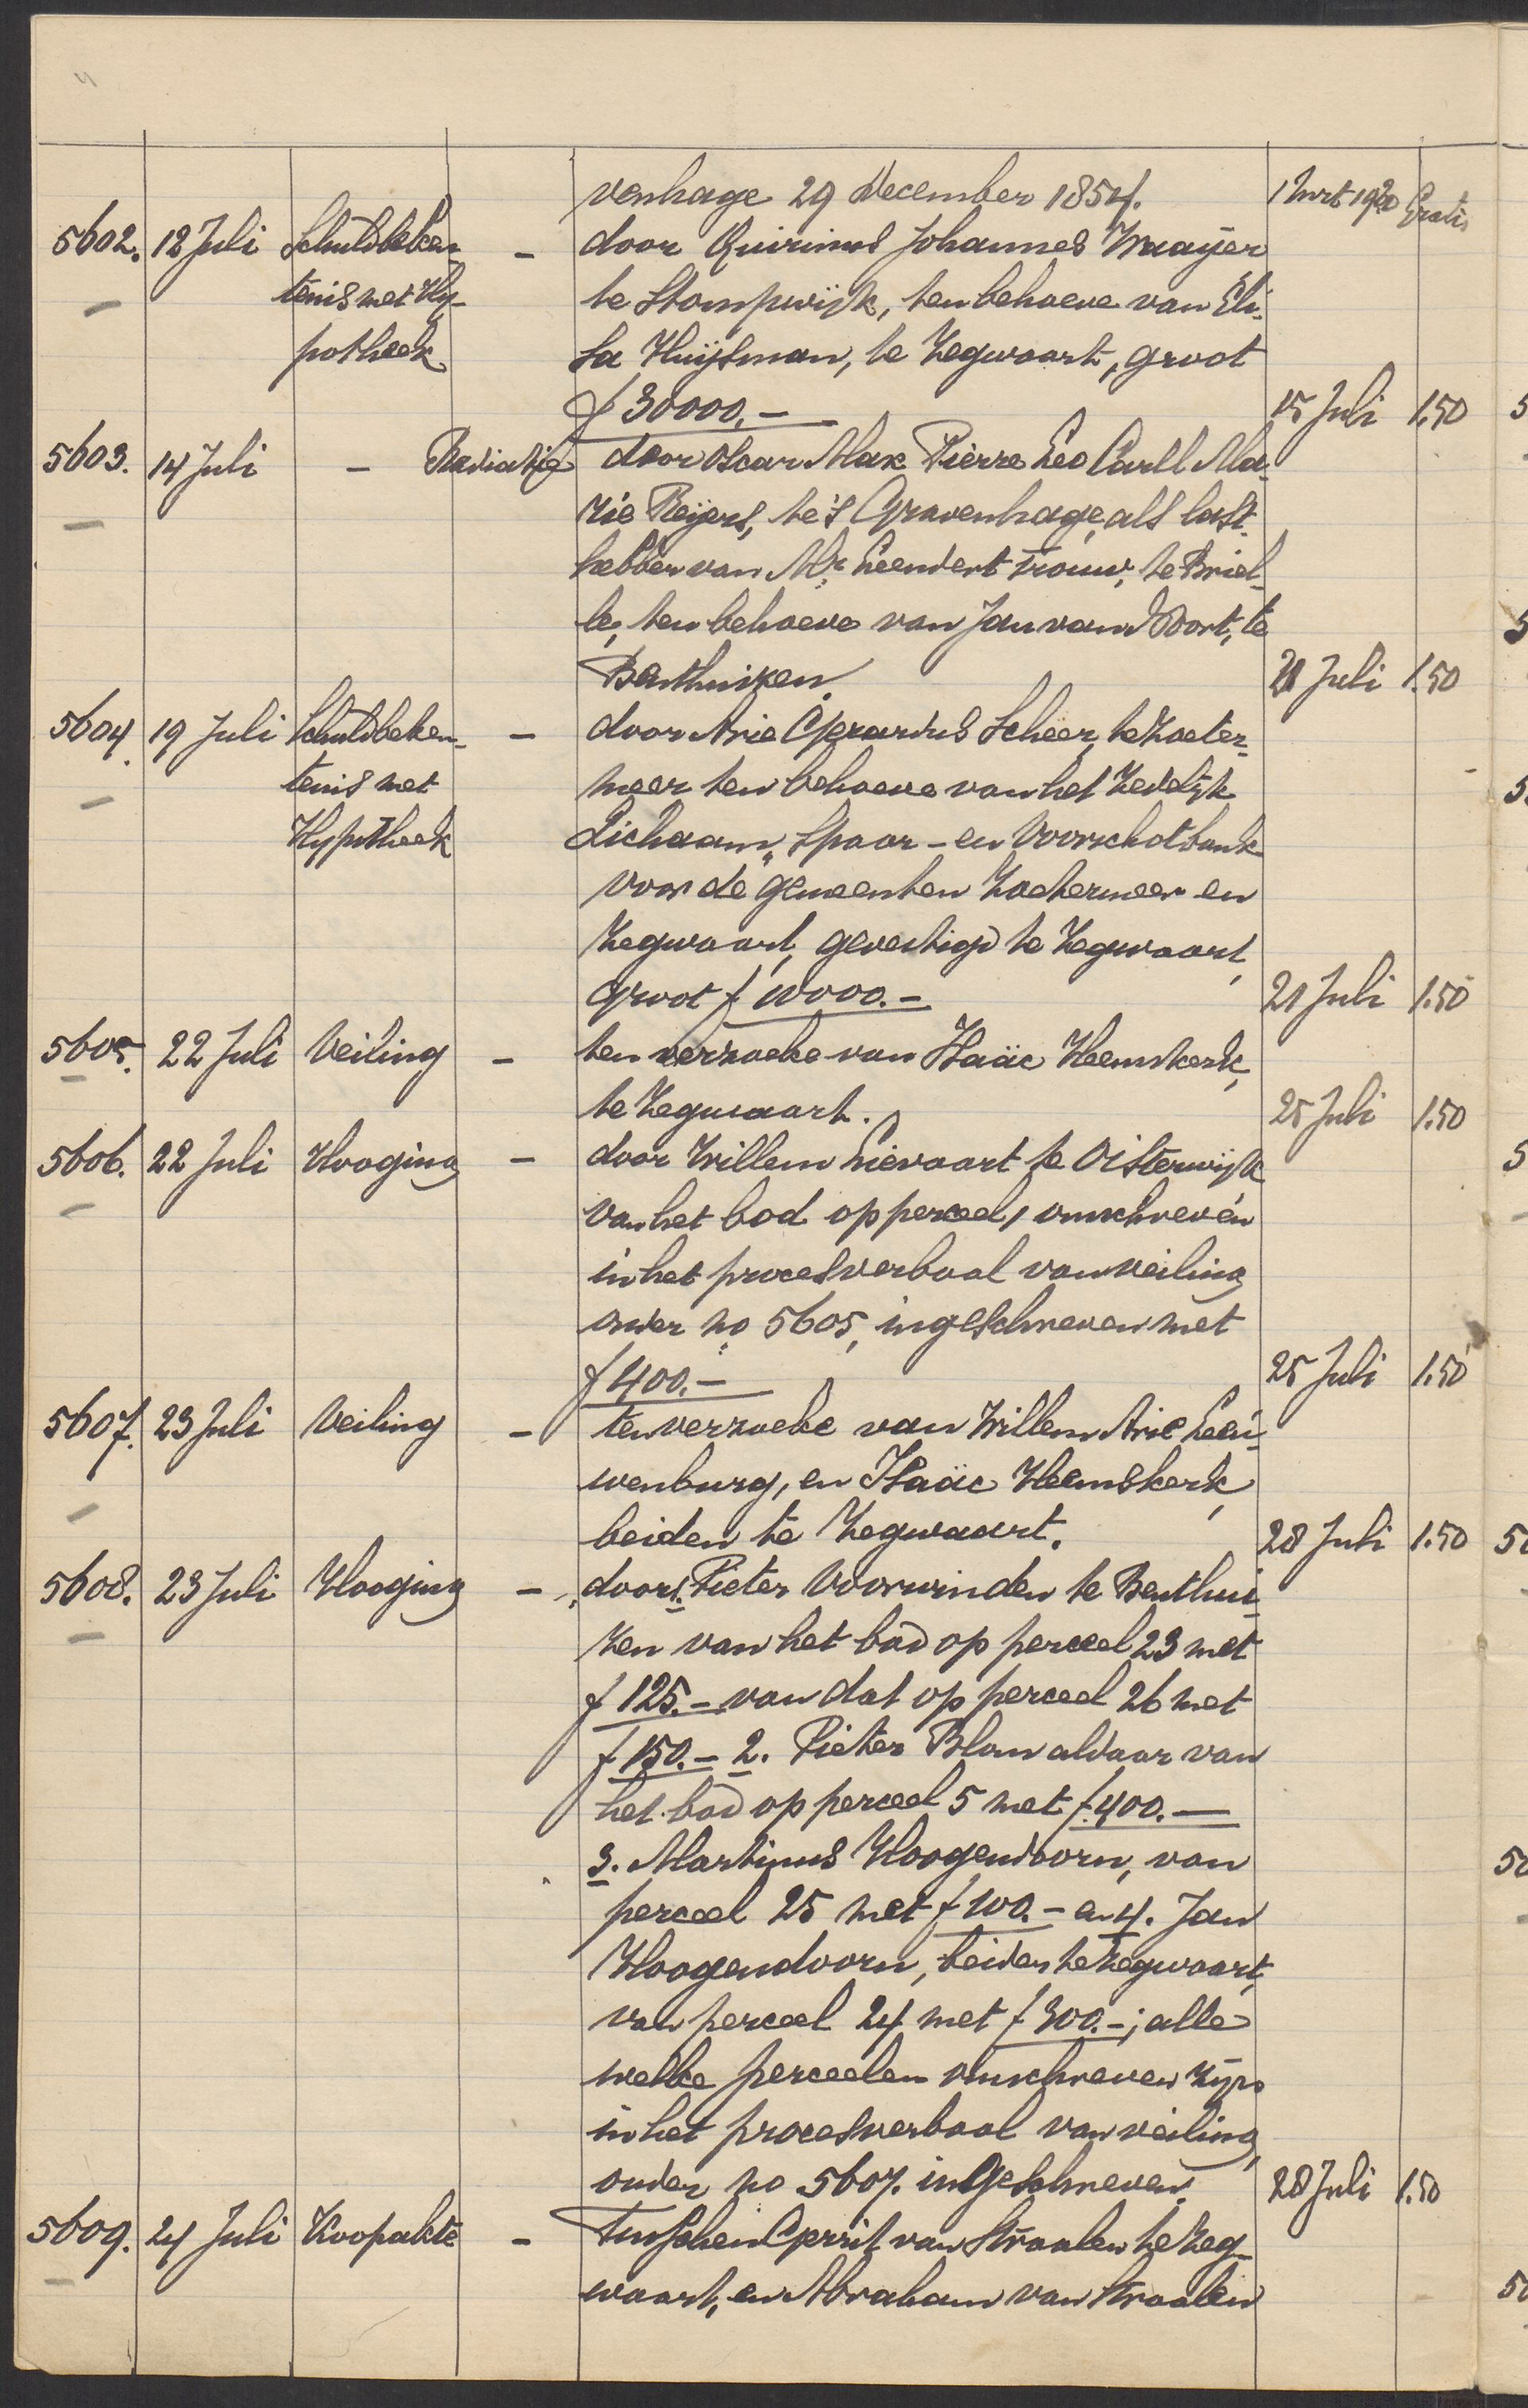 venhage 29 December 1854. 1 Mrt 1920 Gratis
5602. 12 Juli Schuldbeken- - door Quirinus Johannes Waaijer
tenis met Hy- te Stompwijk, ten behoeve van Eli-
potheek sa Huijsman, te Zegwaart, groot
f 30000.- 15 Juli 1.50
5603. 14 Juli - Radiatie door Oscar Max Pierre Leo Carll Ma-
rie Reijers, te 's Gravenhage, als last-
hebber van Mr. Leendert Trouw, te Briel-
le, ten behoeve van Jan van Oort, te
Benthuizen. 21 Juli 1.50
5604. 19 Juli Schuldbeken- - door Arie Gerardus Scheer, te Zoeter-
tenis met meer ten behoeve van het Zedelijk
Hypotheek Lichaam, „Spaar- en Voorschotbank
voor de gemeenten Zoetermeer en
Zegwaart, gevestigd te Zegwaart,
groot f 10000.- 21 Juli 1.50
5605. 22 Juli Veiling - ten verzoeke van Isaäc Heemskerk,
te Zegwaart. 25 Juli 1.50
5606. 22 Juli Hooging - door Willem Lievaart te Oisterwijk
van het bod op perceel 1 omschreven
in het procesverbaal van veiling
onder no 5605, ingeschreven met
f 400.- 25 Juli 1.50
5607. 23 Juli Veiling - ten verzoeke van Willem Arie Leeu-
wenburg, en Isaäc Heemskerk,
beiden te Zegwaart. 28 Juli 1.50
5608. 23 Juli Hooging - door 1. Pieter Voorwinden te Benthui-
zen van het bod op perceel 23 met
f 125.- van dat op perceel 26 met
f 150.- 2. Pieter Blom aldaar van
het bod op perceel 5 met f. 400.-
3. Martinus Hoogendoorn, van
perceel 25 met f 100.- en 4. Jan
Hoogendoorn, beiden te Zegwaart,
van perceel 24 met f 300.-; alle
welke perceelen omschreven zijn
in het procesverbaal van veiling,
onder no 5607. ingeschreven. 28 Juli 1.50
5609. 24 Juli Koopakte - Tusschen Gerrit van Straalen te Zeg-
waart, en Abraham van Straalen